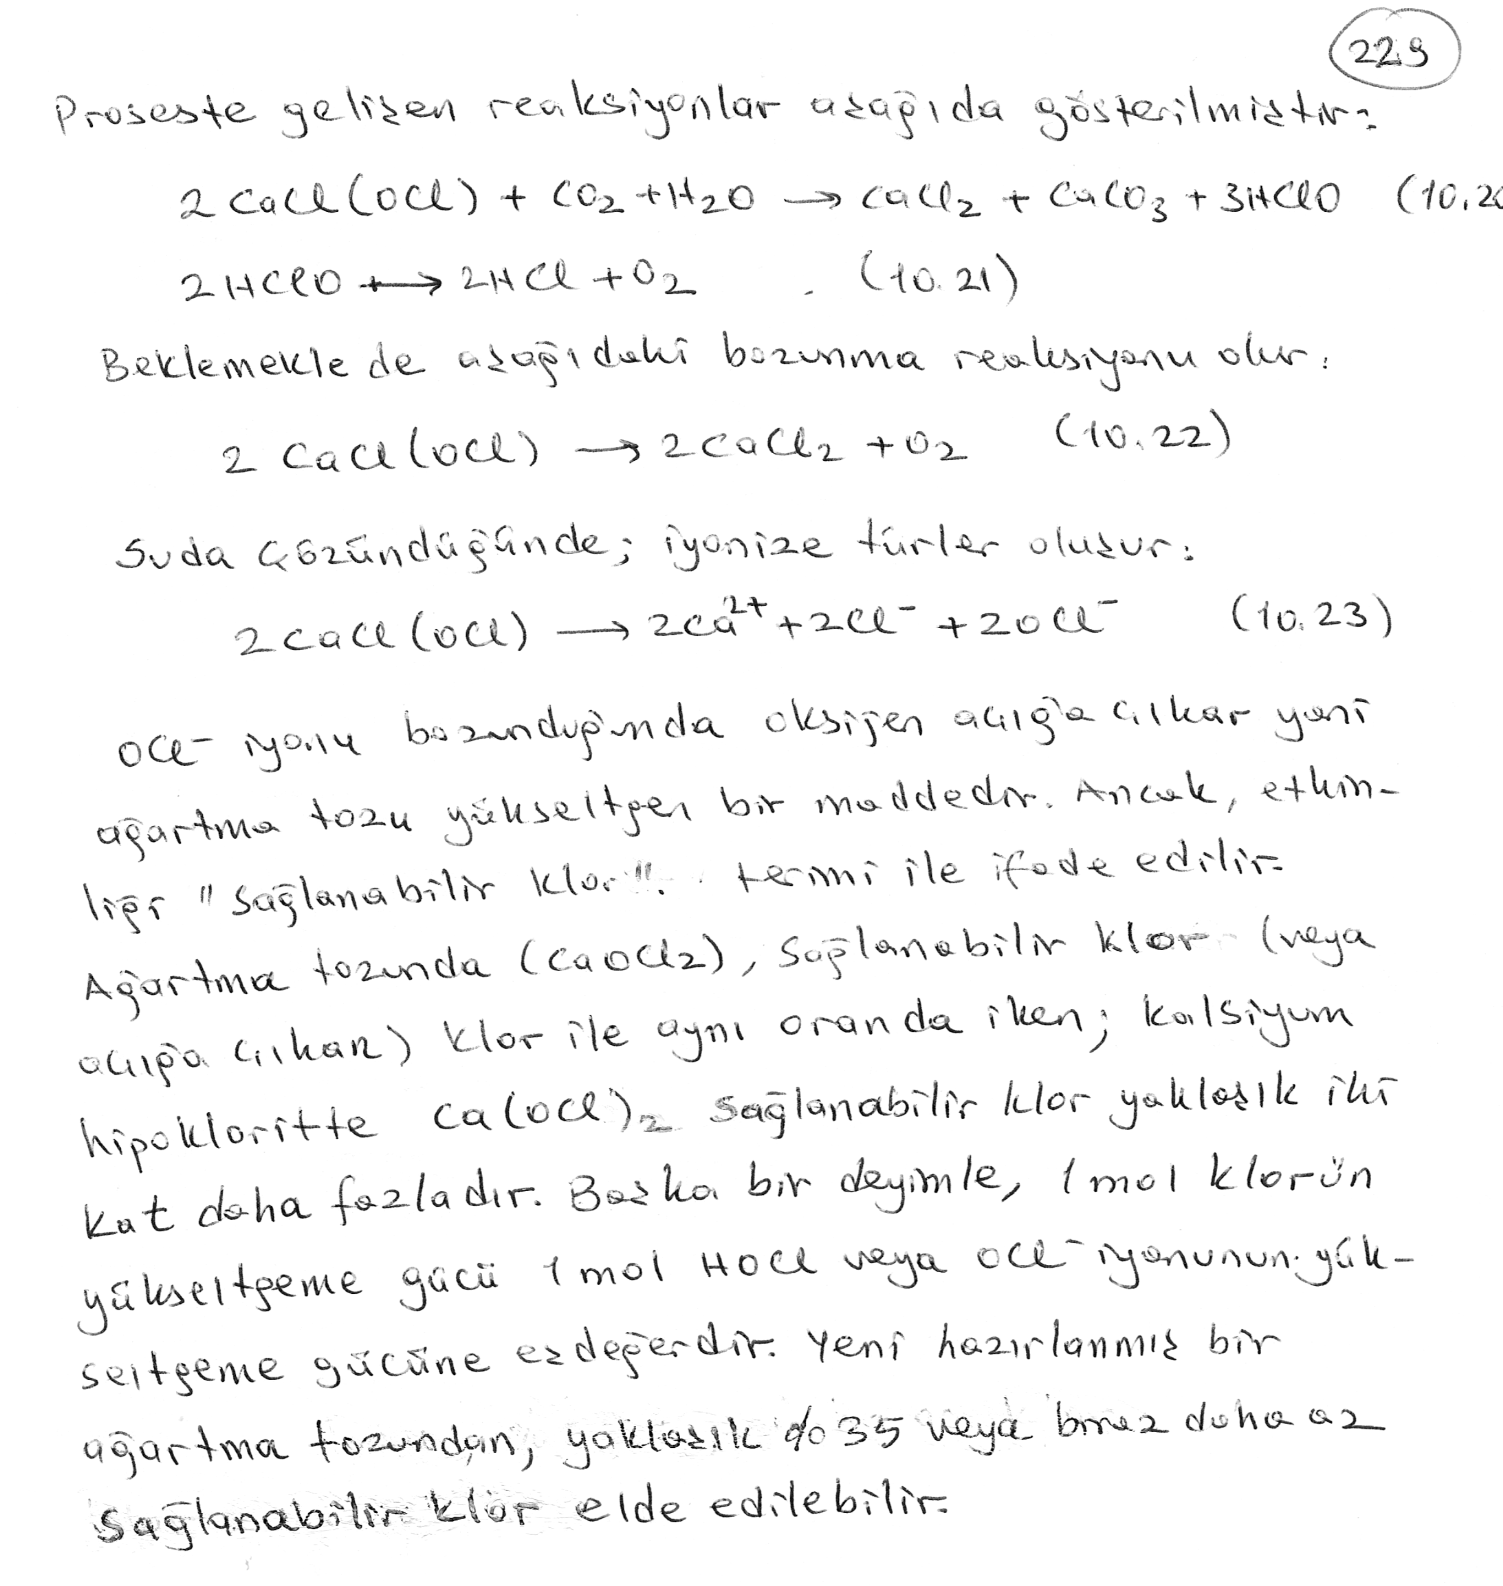 229
Proseste gelişen reaksiyonlar aşağıda gösterilmiştir:
2 CaCl(OCl) + CO2 + H2O → CaCl2 + CaCO3 + 3HClO (10.20
2HClO → 2HCl + O2 (10.21)
Beklemekle de aşağıdaki bozunma reaksiyonu olur:
2 CaCl(OCl) → 2CaCl2 + O2 (10.22)
Suda çözündüğünde; iyonize türler oluşur:
2CaCl(OCl) → 2Ca²⁺ + 2Cl⁻ + 2OCl⁻ (10.23)
OCl⁻ iyonu bozunduğunda oksijen açığa çıkar yani
ağartma tozu yükseltgen bir maddedir. Ancak, etkin-
liği "sağlanabilir klor". termi ile ifade edilir.
Ağartma tozunda (CaOCl2), sağlanabilir klor (veya
açığa çıkan) klor ile aynı oranda iken; kalsiyum
hipokloritte Ca(OCl)2 sağlanabilir klor yaklaşık iki
kat daha fazladır. Başka bir deyimle, 1 mol klorün
yükseltgeme gücü 1 mol HOCl veya OCl⁻ iyonunun yük-
seltgeme gücüne eşdeğerdir. Yeni hazırlanmış bir
ağartma tozundan, yaklaşık %35 veya biraz daha az
sağlanabilir klor elde edilebilir.